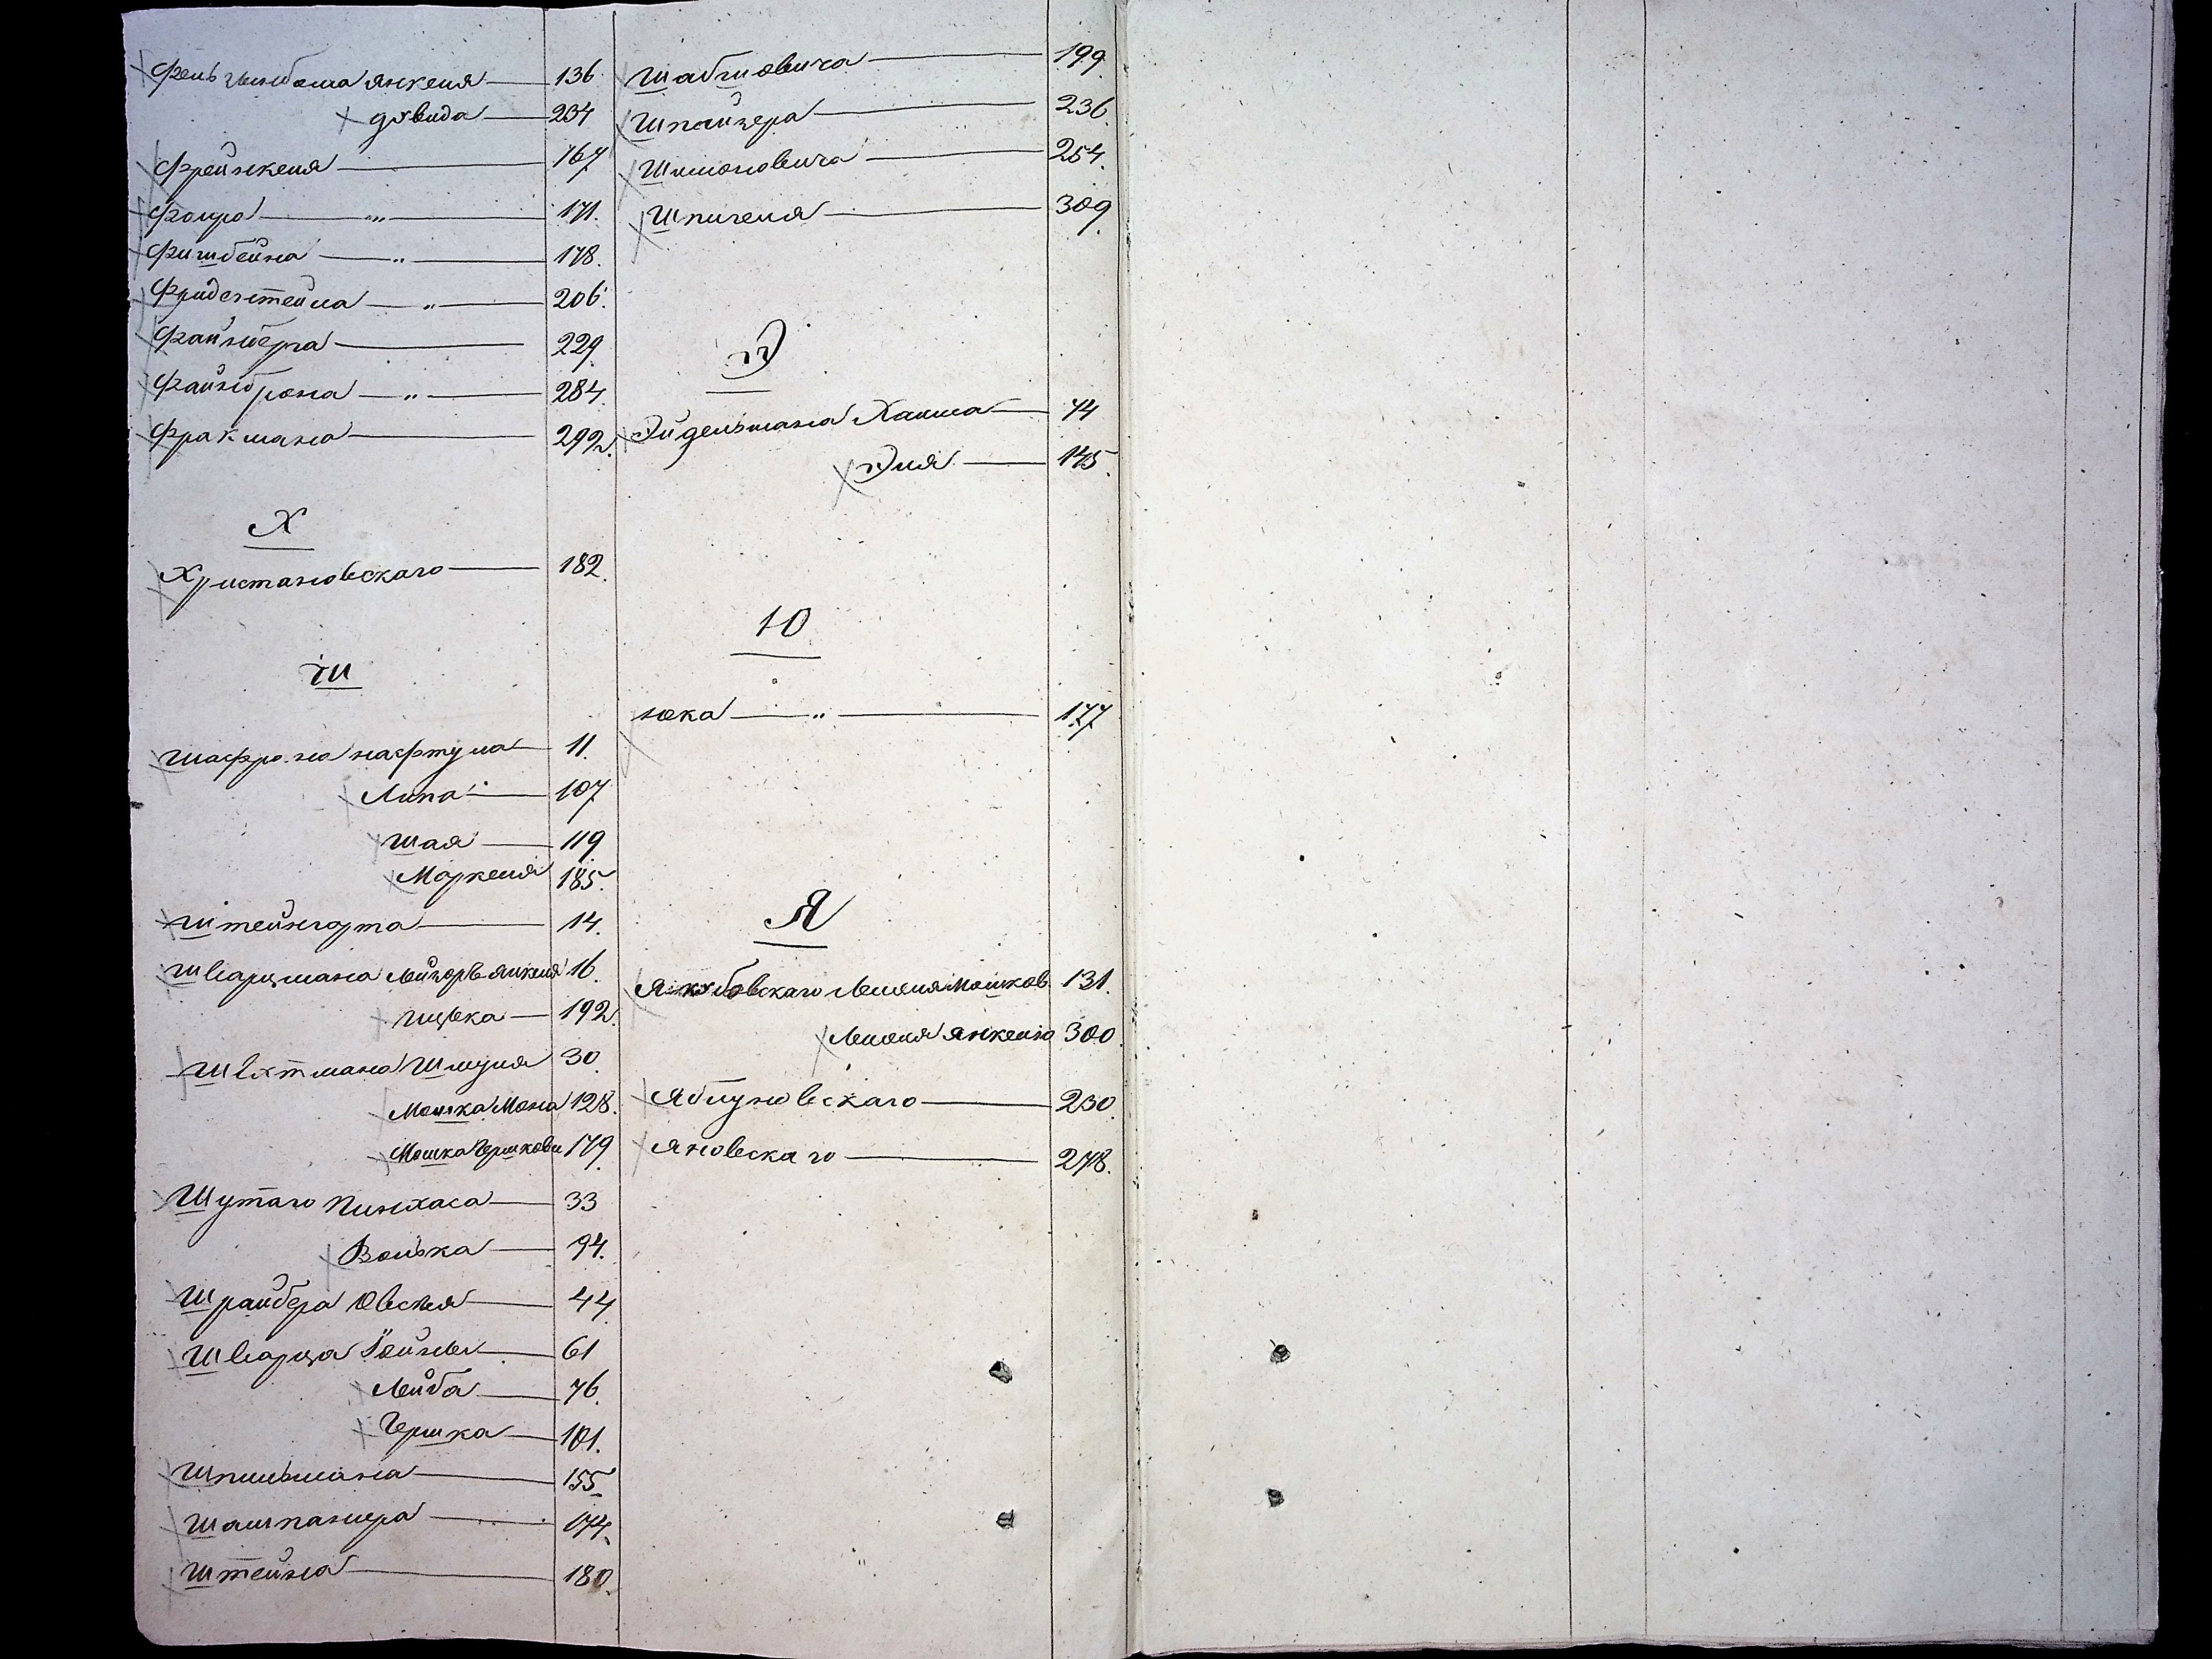 Фельгинбома Янкеля 136
Довида 234
Френкеля 167
Фоира 171.
Фишбейна 178.
Фридентейма 206.
Файнберга 229
Файнброна 284.
Фракмана 292.
Х
Христановскаго 182.
Ш
Шафрона Нафтула 11.
Липа 107
Шая 119
Моркеля 185.
Штейнгорта 14.
Шварцмана Лейзоръ Янкеля 16.
Ицька 192.
Шехтмана Шмуля 30.
Мошка Мона 128.
Мошка Гершкови 179
Шутаго Пинхаса 33
Волька 94.
Шрайбера Овсея 44
Шварца Гойны 61
Лейба 76.
Гершка 101.
Шпильмана 155
Шампанера 174.
Штейна 180.
Шабшовича 199.
Шпайзера 236.
Шимоновича 254.
Шпигеля 309.
Э
Эйдельмана Хаима 74
Эля 145.
Ю
Юка 177
Я
Якубовскаго Лейзя Мошков. 131.
Янкелю 300.
Яблуновскаго 230
Яновскаго 278.